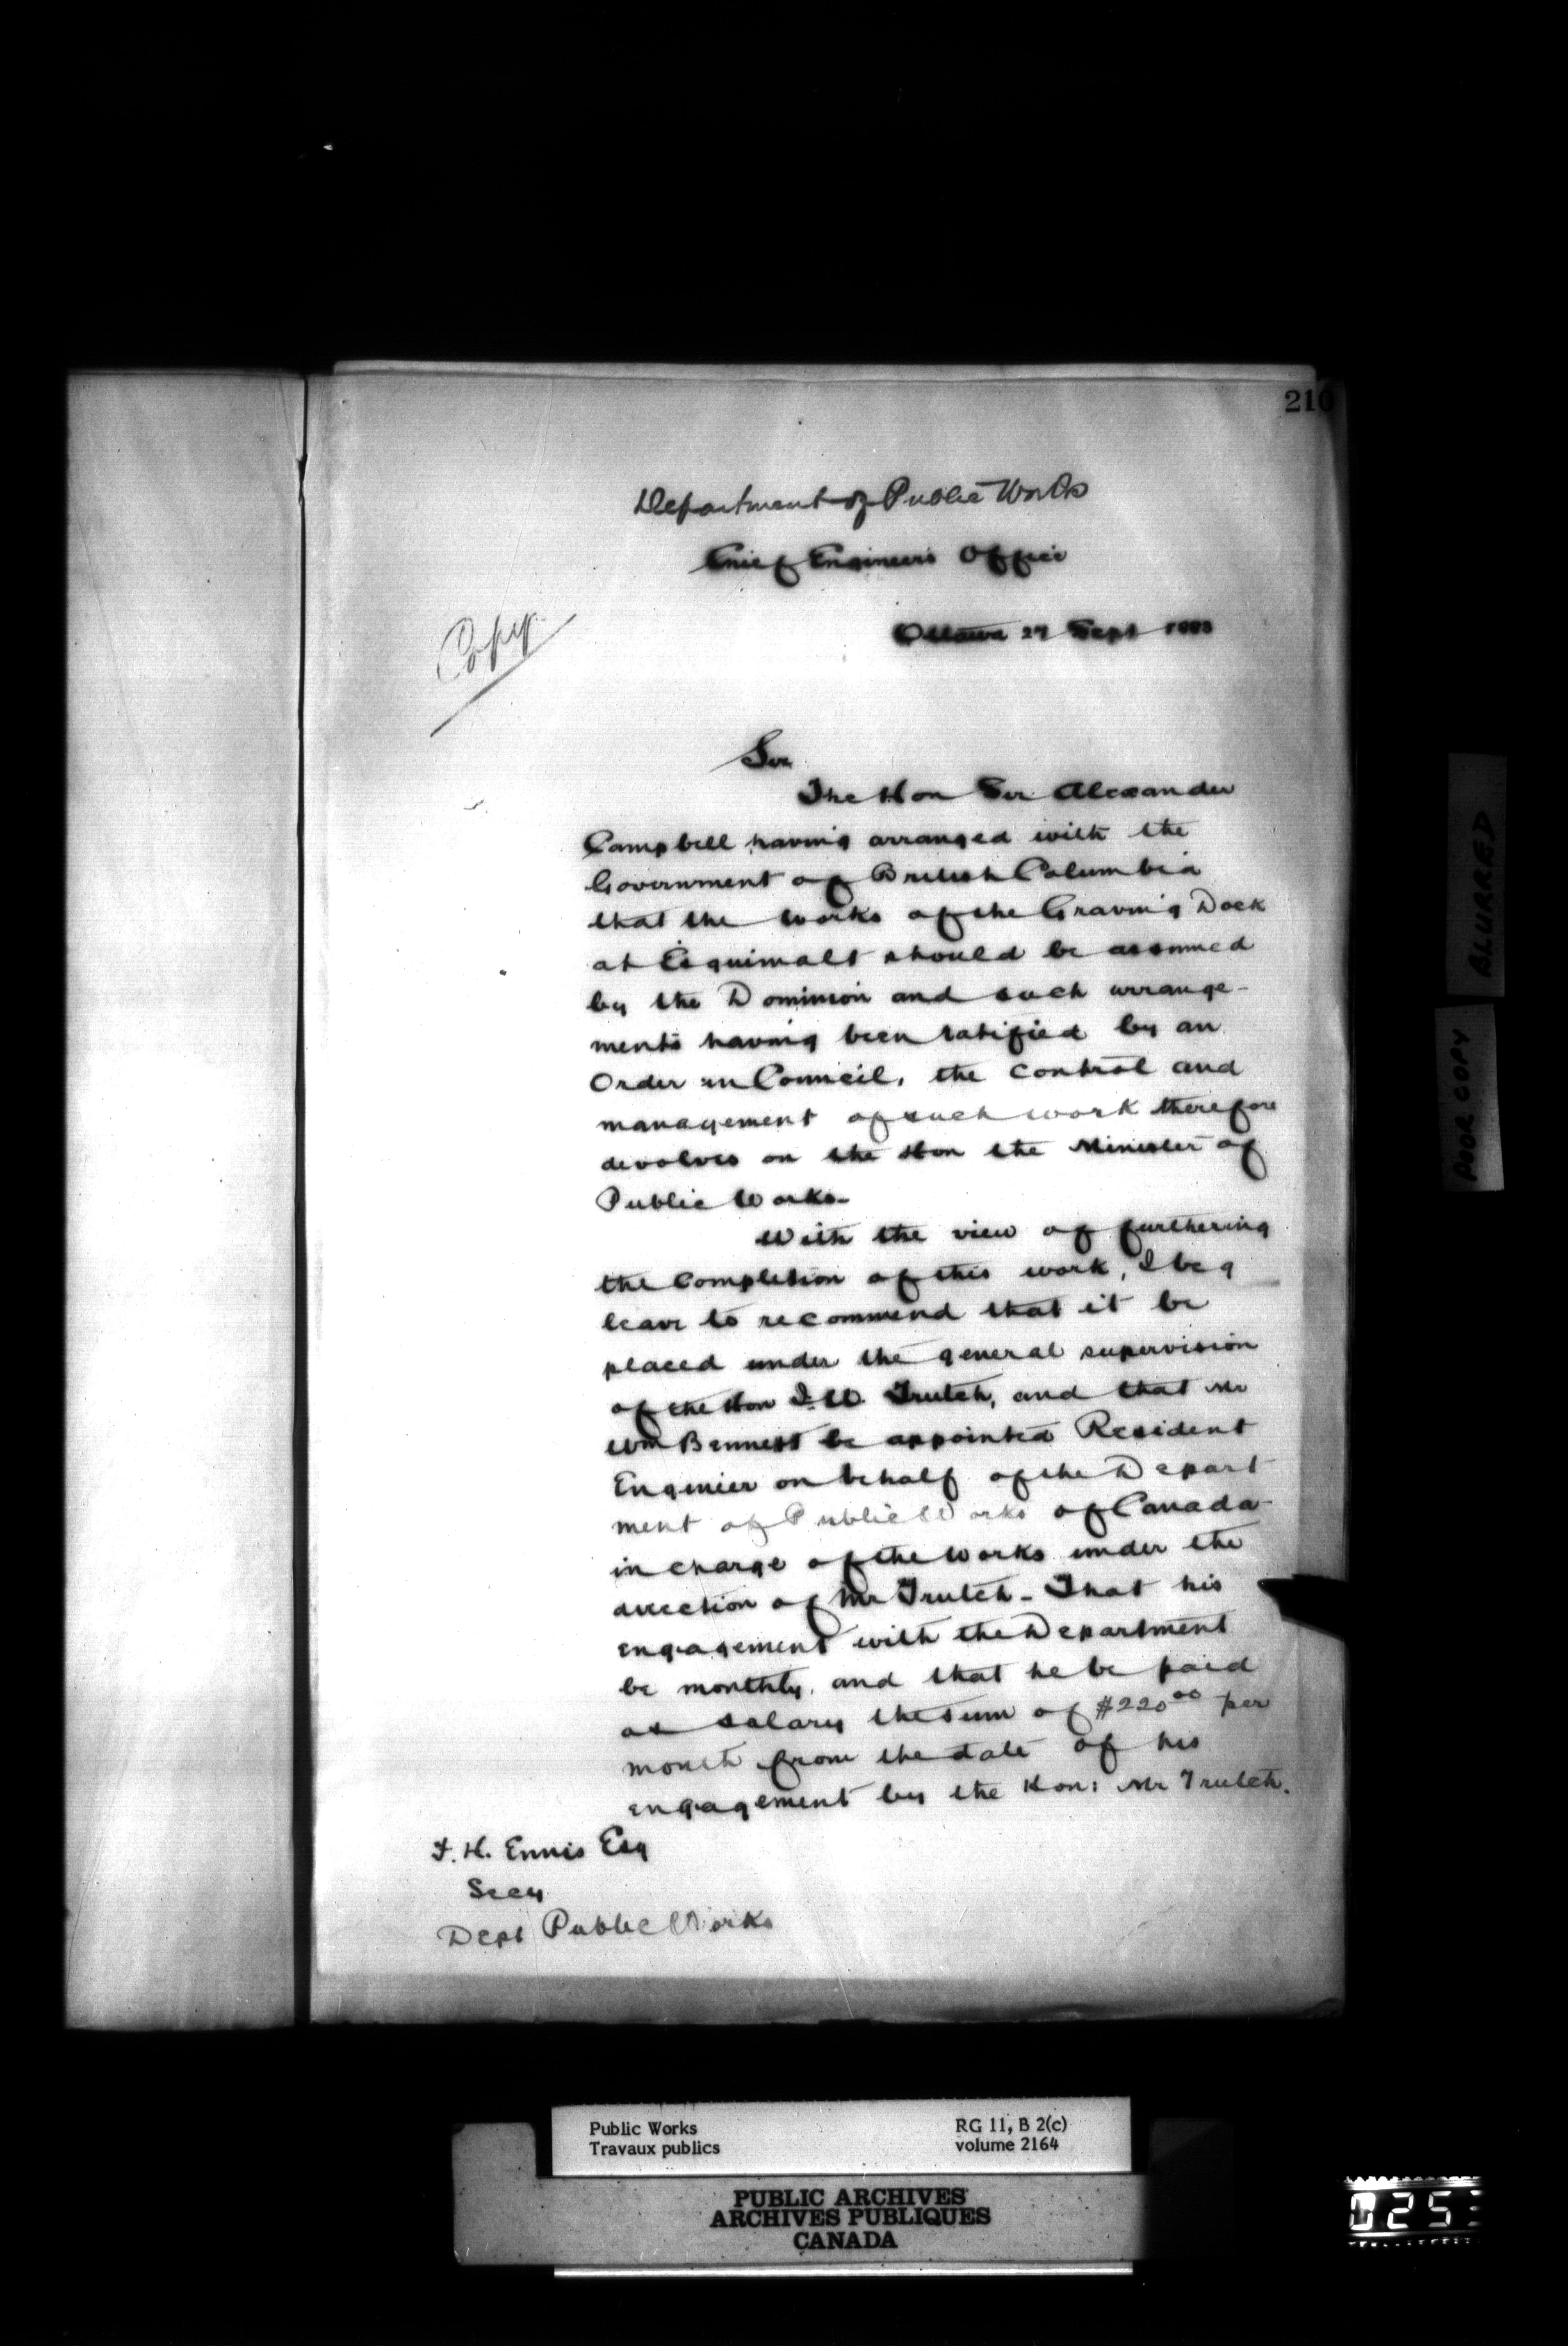 210
Department of Public Works
Chief Engineers Office
Ottawa 27 Sept 1883
Copy
Sir
The Hon Sir Alexander
Campbell having arranged with the
Government of British Columbia
that the works of the Graving Dock
at Esquimalt should be assumed
by the Dominion and such arrange-
ments having been ratified by an
Order in Council, the control and
management of such work therefore
devolves on the Hon the Minister of
Public Works-
With the view of furthering
the Completion of this work, I beg
leave to recommend that it be
placed under the general supervision
of the Hon J. W. Trutch, and that Mr
Wm Bennett be appointed Resident
Engineer on behalf of the Depart
ment of Public Works of Canada
in charge of the works under the
direction of Mr Trutch - That his
engagement with the Department
be monthly, and that he be paid
as salary the sum of $220.00 per
month from the date of his
engagement by the Hon: Mr Trutch.
F. H. Ennis Esq
Secy
Dept Public Works
BLURRED
POOR COPY
Public Works
Travaux publics
RG 11, B 2(c)
volume 2164
PUBLIC ARCHIVES
ARCHIVES PUBLIQUES
CANADA
0253